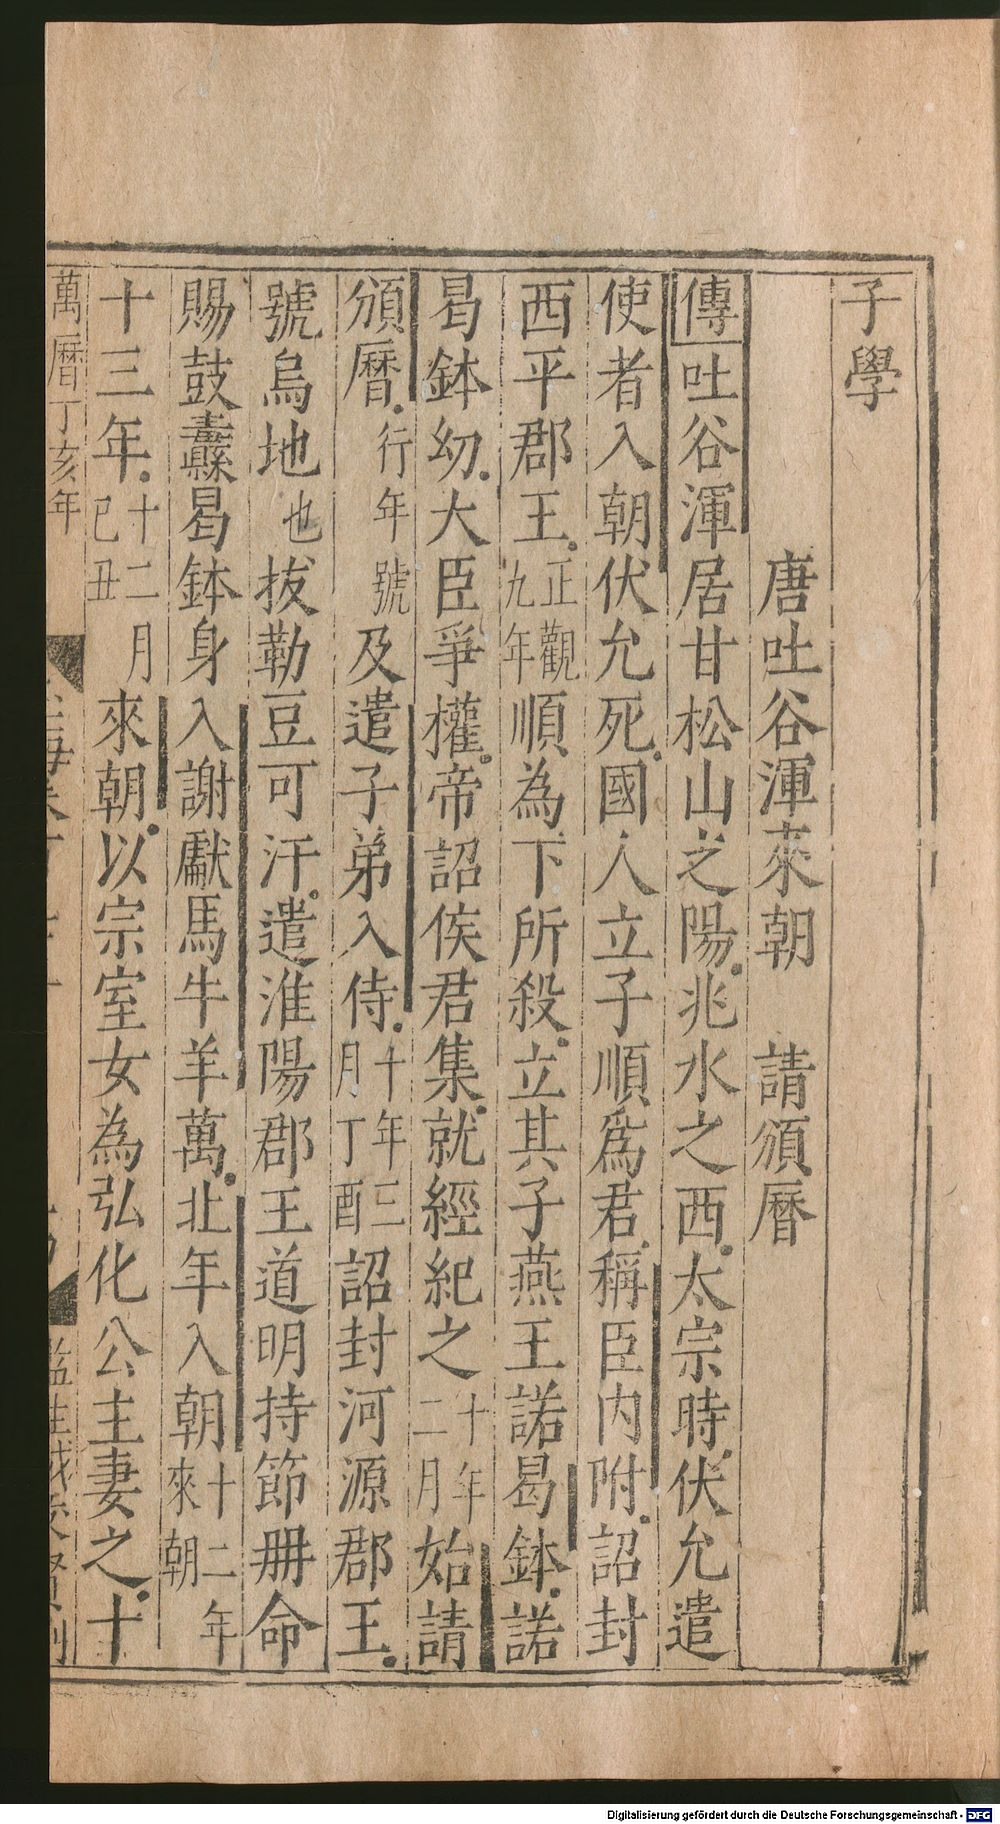 子學
唐吐谷渾來朝 請頒曆
傳吐谷渾居甘松山之陽洮水之西太宗時伏允遣
使者入朝伏允死國人立子順爲君稱臣内附詔封
西平郡王正觀九年順為下所殺立其子燕王諾曷鉢諾
曷鉢幼大臣爭權帝詔侯君集就經紀之十年二月始請
頒曆行年號及遣子弟入侍十年三月丁酉詔封河源郡王
號烏地也拔勒豆可汗遣淮陽郡王道明持節冊命
賜鼓纛曷鉢身入謝獻馬牛羊萬北年入朝十二年來朝
十三年十二月己丑來朝以宗室女為弘化公主妻之十
萬曆丁亥年
Digitalisierung gefördert durch die Deutsche Forschungsgemeinschaft - DFG